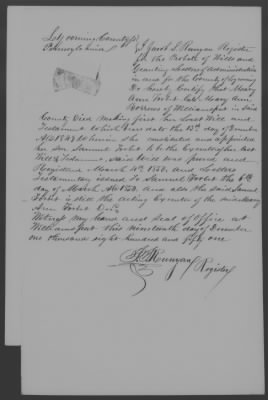 Lycoming County } ss
Pennsylvania
I Jacob S Runyan Register
for the Probate of Wills and
Granting Letters of Administration
in and for the County of Lycoming
Do hereby Certify that Mary
Ann late Mary Ann
of Williamsport in said
County Died making first her Last Will and
Testament which bears date the 13th day of
AD 18 wherein she constituted and appointed
her son Samuel to be the Executor of her last
Will & Testament, said Will was proved and
Registered March 1850, and Letters
Testamentary issued to Samuel the 6th
day of March AD 1850. and also the said Samuel
is still the acting Executor of the said Mary
Ann Decd
Witness my hand and seal of Office at
Williamsport this nineteenth day of December
one thousand eight hundred and fifty one
Runyan
Register